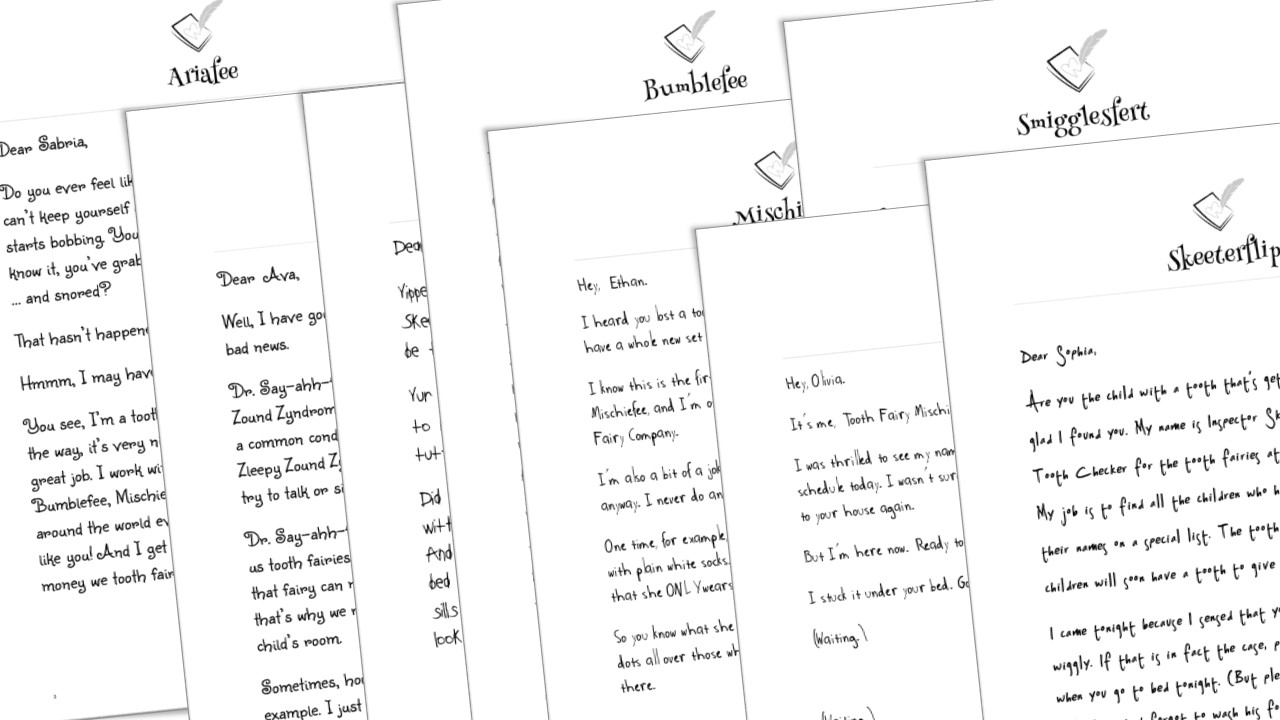 Ariafee
Dear Sabria,
Do you ever feel
can't keep yourself
starts bobbing. You
know it, you've
... and snored?
That hasn't
Hmmm, I may
You see, I'm a
the way, it's very
great job. I work
Bumblefee,
around the world
like you! And I get
money we tooth
Dear Ava,
Well, I have
bad news.
Dr. Say-ahh-
Zound
a common
Zleepy Zound
try to talk or
Dr. Say-ahh-
us tooth fairies
that fairy can
that's why we
child's room.
Sometimes,
example. I just
be
Yur
to
tut-
Did
And
bed
sills
look
Bumblefee
Mischi
Hey, Ethan.
I heard you lost a
have a whole new set
I know this is the
Mischiefee, and I'm
Fairy Company.
I'm also a bit of a
anyway. I never do
One time, for example
with plain white socks.
that she ONLY wears
So you know what she
dots all over those
there.
Hey, Olivia.
It's me, Tooth Fairy Mischi
I was thrilled to see my
schedule today. I wasn't
to your house again.
But I'm here now. Ready to
I stuck it under your bed.
(Waiting.)
(Waiting.)
Smigglesfert
Skeeterflip
Dear Sophia,
Are you the child with a tooth that's
glad I found you. My name is Inspector
Tooth Checker for the tooth fairies
My job is to find all the children who
their names on a special list. The tooth
children will soon have a tooth to give
I came tonight because I sensed that
wiggly. If that is in fact the case,
when you go to bed tonight. (But
forgot to wash his